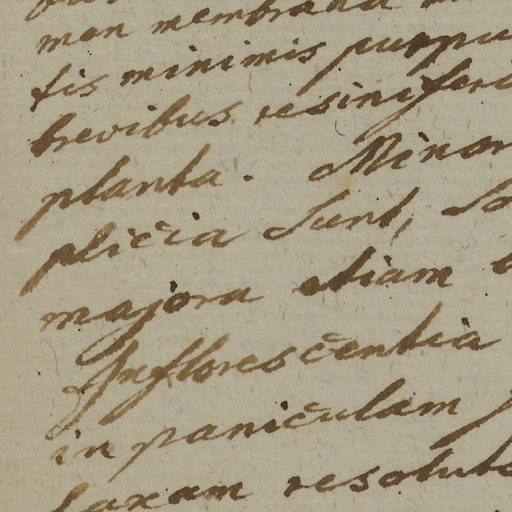 men membrana
tis minimis purpu
brevibus resinifer
planta. Minor
plicia sunt, so
majora etiam
Inflorescentia
in paniculam
laxam resolut